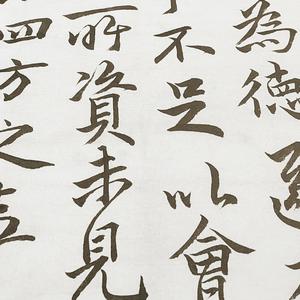 為德
不足以會
所資未見
四方之